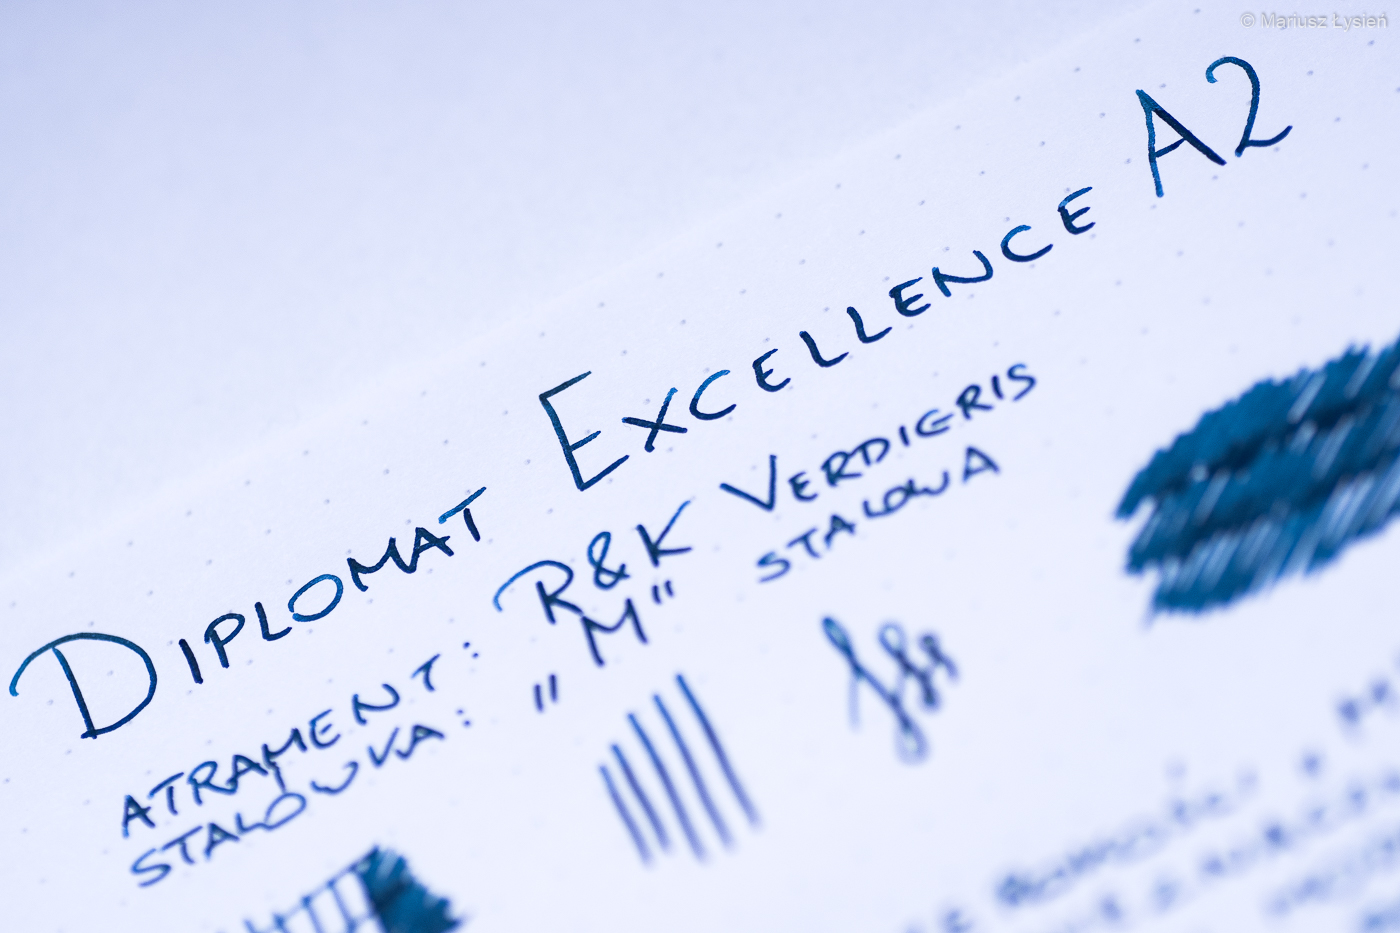 © Mariusz Łysień
DIPLOMAT EXCELLENCE A2
ATRAMENT: R&K VERDIGRIS
STALÓWKA: „M" STALOWA